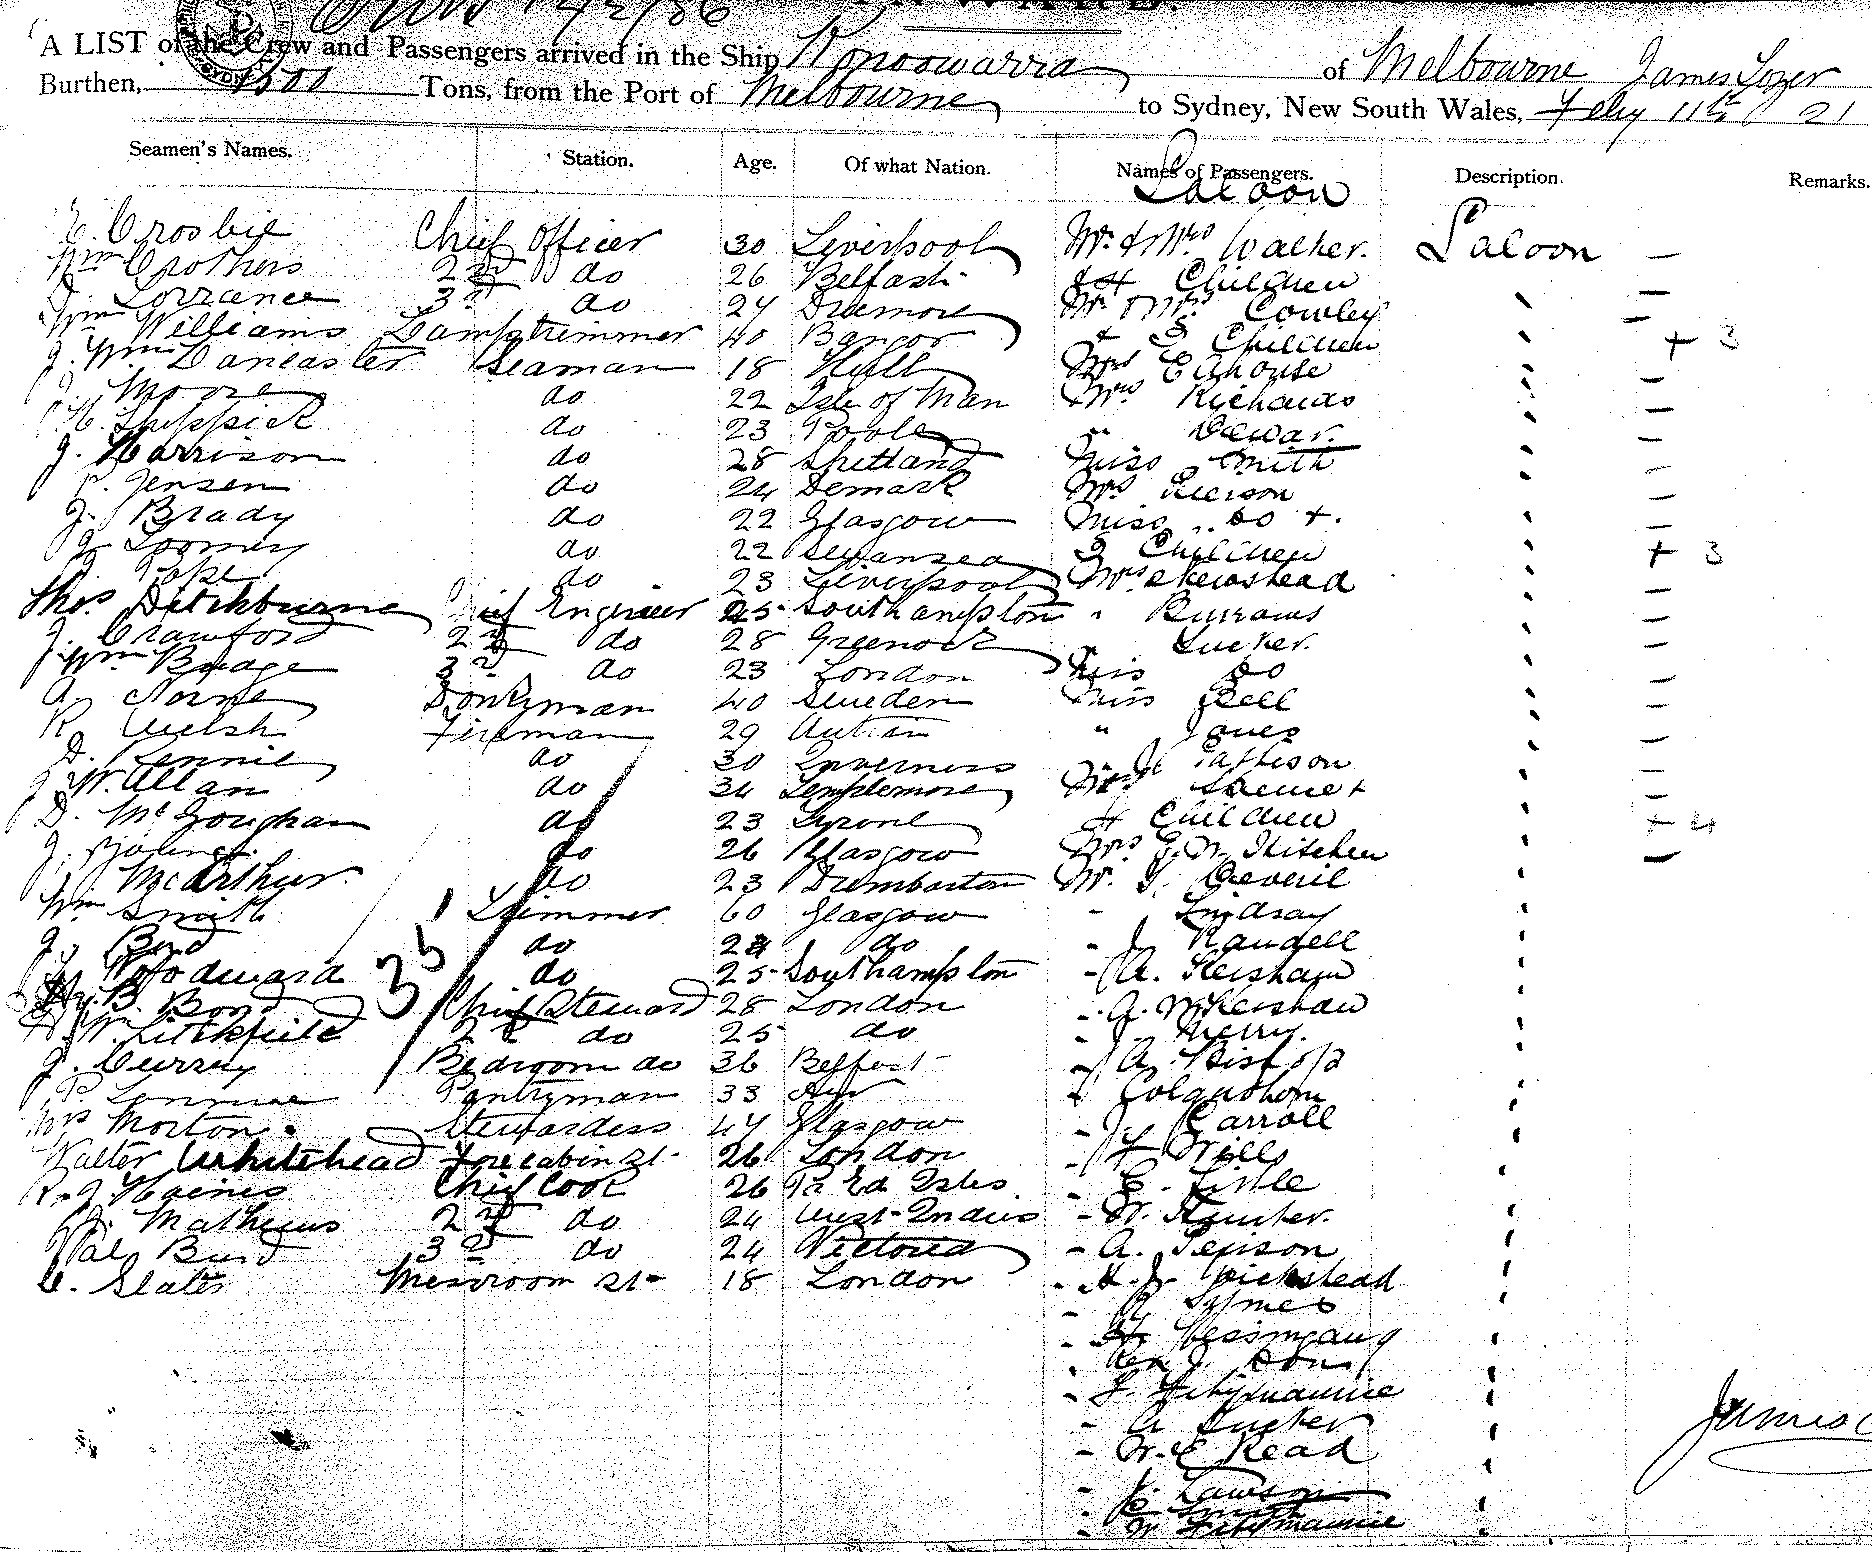 A LIST of the Crew and Passengers arrived in the Ship Konoowarra of Melbourne James Lozer
Burthen, 1500 Tons, from the Port of Melbourne to Sydney, New South Wales, Feby 11th
Seamen's Names. Station. Age. Of what Nation. Names of Passengers. Description. Remarks.
Saloon
E. Crosbie Chief Officer 30 Liverpool Mr. & Mrs Walker. Saloon —
Wm Crothers 2nd do 26 Belfast 4 Children —
J. Lorrance 3d do 24 Dremore Mr & Mrs Cowley —
Wm Williams Lamptrimmer 40 Bangor & 3 Children + 3
J. Wm Dancaster Seaman 18 Hull Mrs —
J. Moore do 22 Isle of Man Mrs Richards —
H. Sheppick do 23 Poole " Dewar. —
J. Harrison do 28 Shetland Miss Smith —
P. Jensen do 24 Demark Mrs Pierson —
J. Brady do 22 Glasgow Miss " do + —
J. Loomey do 22 Swansea 3 Children + 3
J. Pope do 23 Liverpool Mrs Skewshead —
Thos. Ditchburne Chief Engineer 45 Southampton " Burrows —
J. Crawford 2d do 28 Greenock " Tucker. —
Wm Bridge 3d do 23 London Miss do —
A. Donkyman 40 Sweden Miss Bell —
R. Welsh Fireman 29 " Jones —
D. Rennie do 30 Inverness " J. Pattison —
J. W. Allan do 34 Templemore Mrs —
D. McGoughan do 23 Tyrone 4 Children + 4
J. Young do 26 Glasgow Mrs Kitchen —
J. McArthur. do 23 Dumbarton Mr. J. Deveril
Wm Smith Trimmer 60 Glasgow - Lindsay
J. Bird do 24 do - J. Randell
Woodward do 25 Southampton - A. Kershaw
Hy. B. Bond Chief Steward 28 London - A. W. Kershaw
W. Litchfield 2d do 25 do - J. Merry.
J. Currey Bedroom do 36 Belfast - A. Bishop
P. Lennie Pantryman 33 Ayr - Colquohom
Mrs Morton. Stewardess 47 Glasgow - J. Carroll
Walter Whitehead Forecabin St 26 London - F. Wills
R. J. Haines Chief Cook 26 Pr Ed Isles. - E. Little
J. Mathews 2d do 24 West Indies - W. Hunter.
Val Burd 3d do 24 Victoria - A. Pepison
C. Slater Messroom St 18 London - H. J. Wickstead
- R. Symes
- H.
- Rev J.
- J. Fitzmaurice
- A Tucker
- W. E Read
- J. Lawson
- W Fitzmaurice
35
James